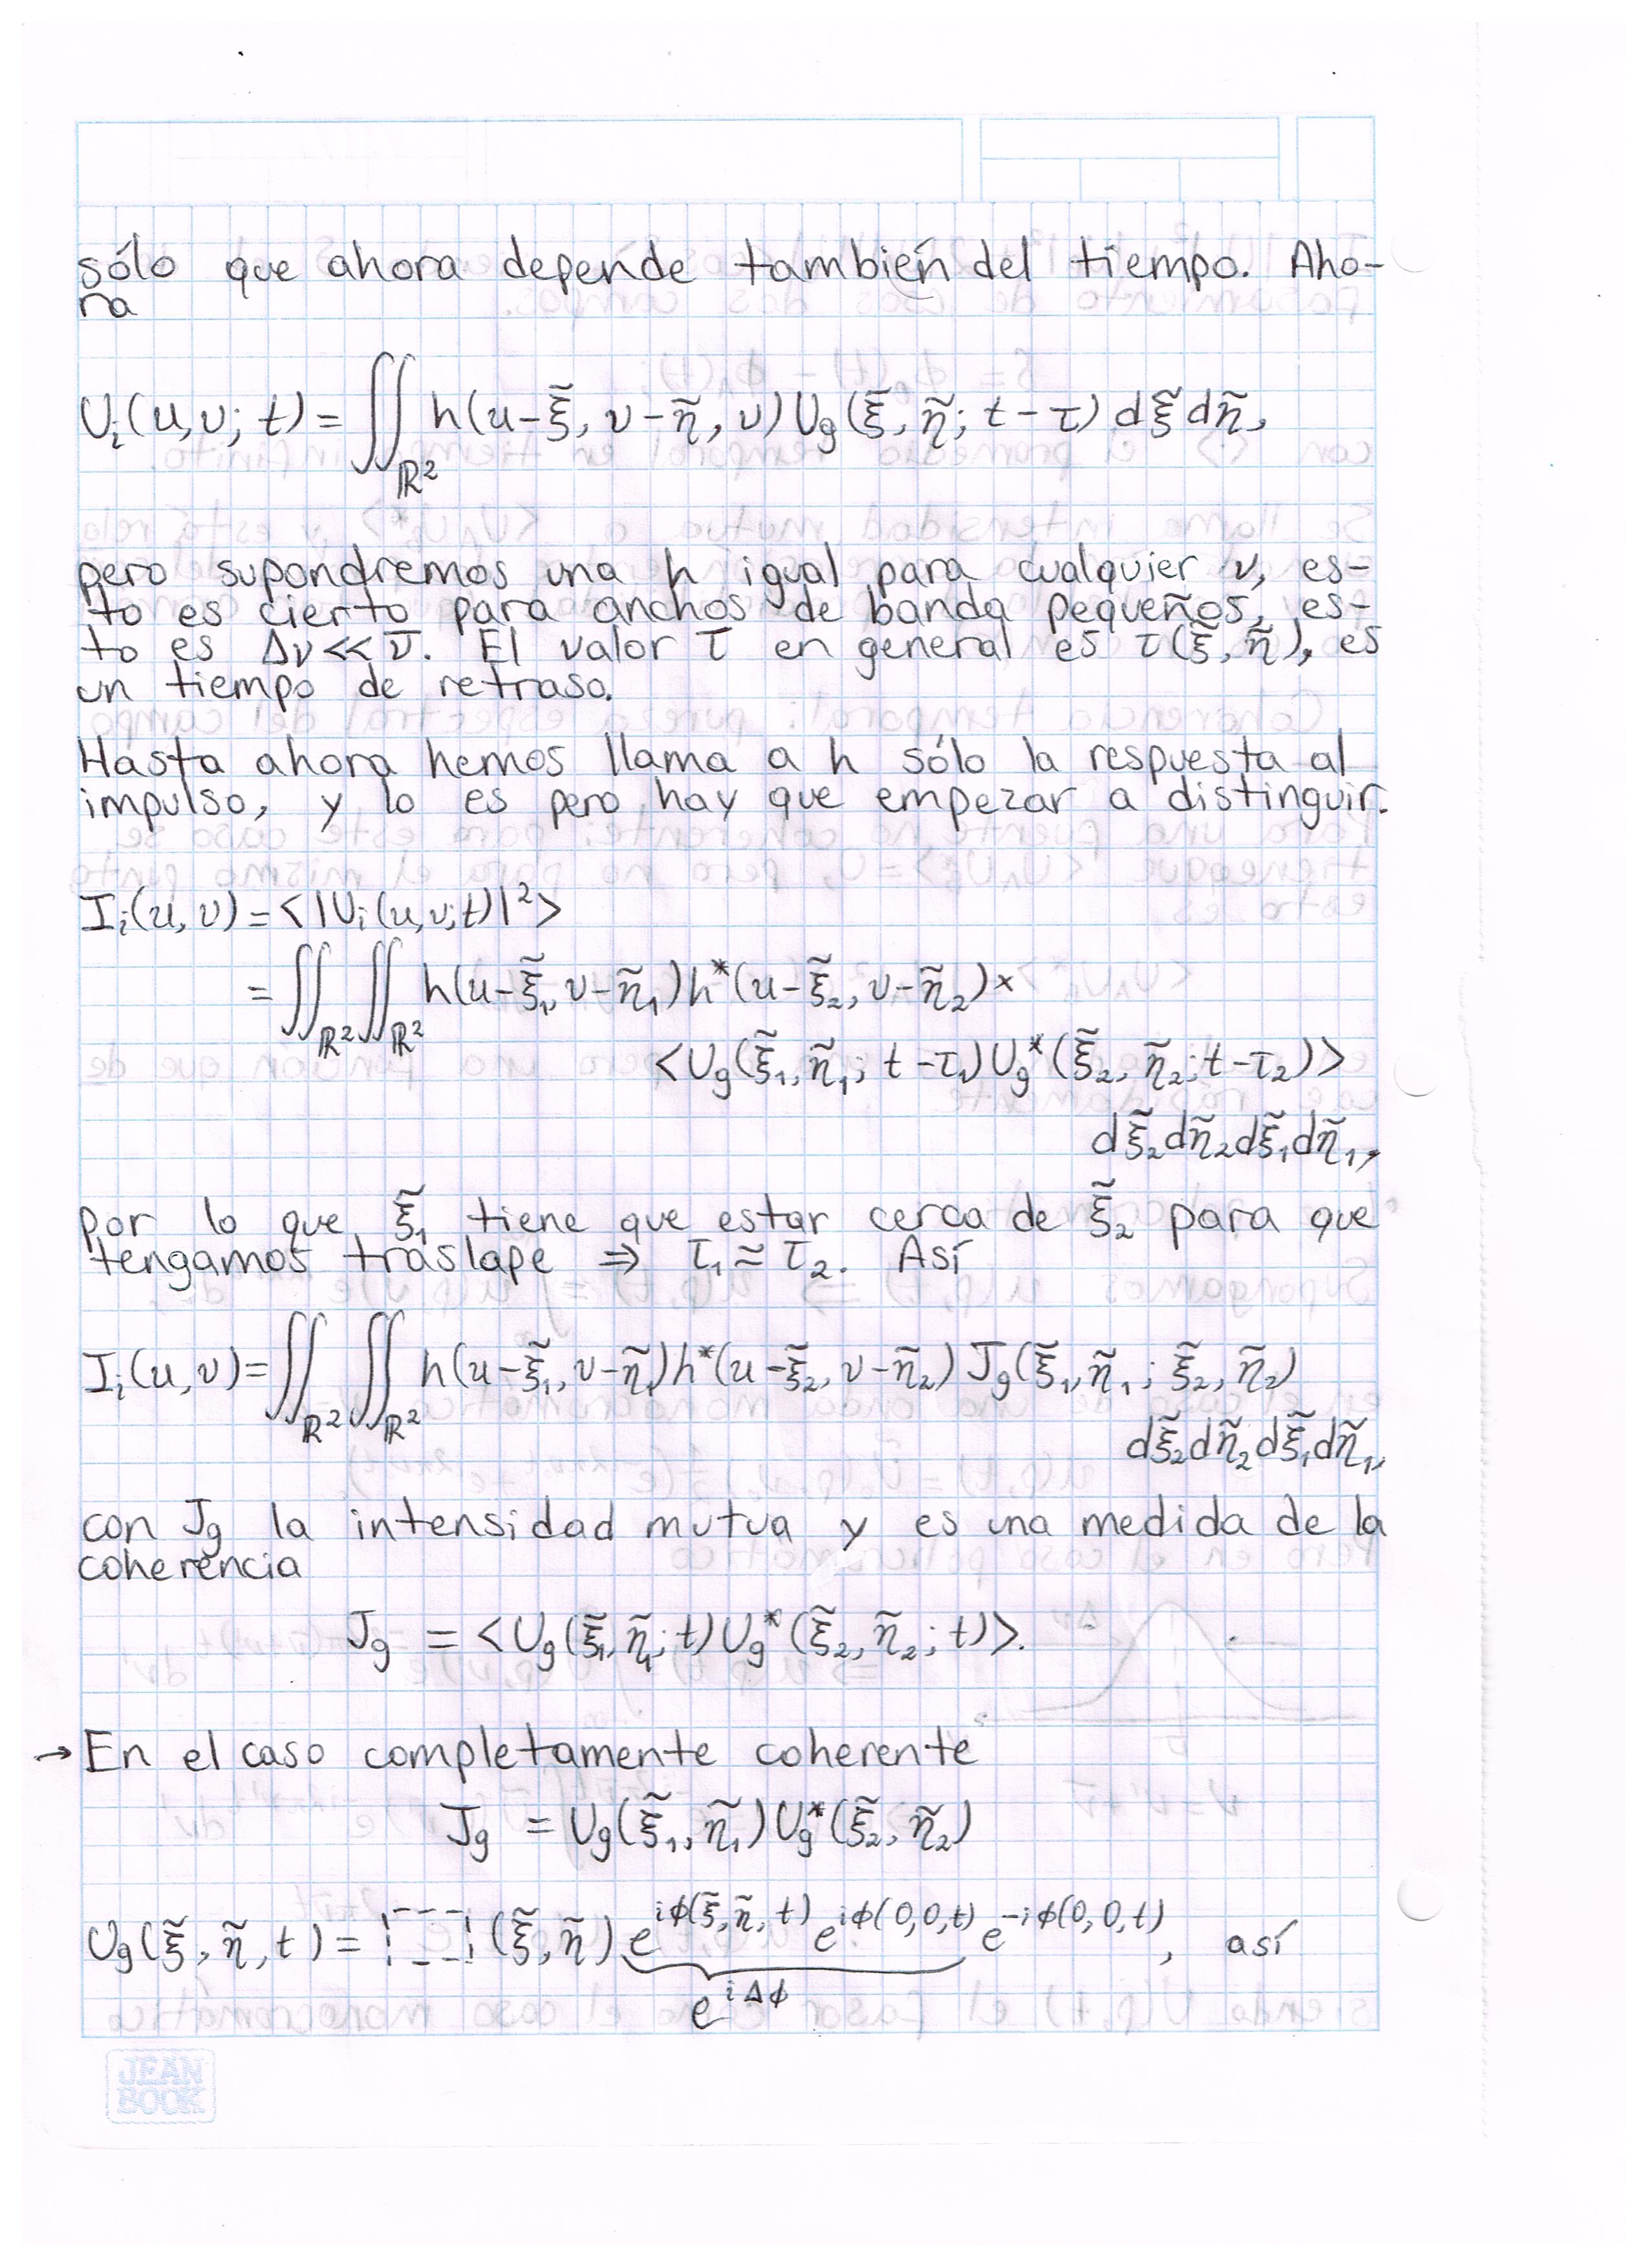 sólo que ahora depende también del tiempo. Aho-
ra
U_i(u,v;t) = ∬_{ℝ²} h(u-ξ̃, v-η̃, ν) U_g(ξ̃, η̃; t-τ) dξ̃ dη̃,
pero supondremos una h igual para cualquier ν, es-
to es cierto para anchos de banda pequeños, es-
to es Δν << ν̄. El valor τ en general es τ(ξ̃, η̃), es
un tiempo de retraso.
Hasta ahora hemos llama a h sólo la respuesta al
impulso, y lo es pero hay que empezar a distinguir.
I_i(u,v) = <|U_i(u,v;t)|²>
= ∬_{ℝ²} ∬_{ℝ²} h(u-ξ̃₁, v-η̃₁) h*(u-ξ̃₂, v-η̃₂) ×
<U_g(ξ̃₁, η̃₁; t-τ₁) U_g*(ξ̃₂, η̃₂; t-τ₂)>
dξ̃₂ dη̃₂ dξ̃₁ dη̃₁,
por lo que ξ̃₁ tiene que estar cerca de ξ̃₂ para que
tengamos traslape ⇒ τ₁ ≈ τ₂. Así
I_i(u,v) = ∬_{ℝ²} ∬_{ℝ²} h(u-ξ̃₁, v-η̃₁) h*(u-ξ̃₂, v-η̃₂) J_g(ξ̃₁, η̃₁; ξ̃₂, η̃₂)
dξ̃₂ dη̃₂ dξ̃₁ dη̃₁,
con J_g la intensidad mutua y es una medida de la
coherencia
J_g = <U_g(ξ̃₁, η̃₁; t) U_g*(ξ̃₂, η̃₂; t)>.
→ En el caso completamente coherente
J_g = U_g(ξ̃₁, η̃₁) U_g*(ξ̃₂, η̃₂)
U_g(ξ̃, η̃, t) = (ξ̃, η̃) e^{iφ(ξ̃, η̃, t)} e^{iφ(0,0,t)} e^{-iφ(0,0,t)}, así
e^{iΔφ}
JEAN
BOOK